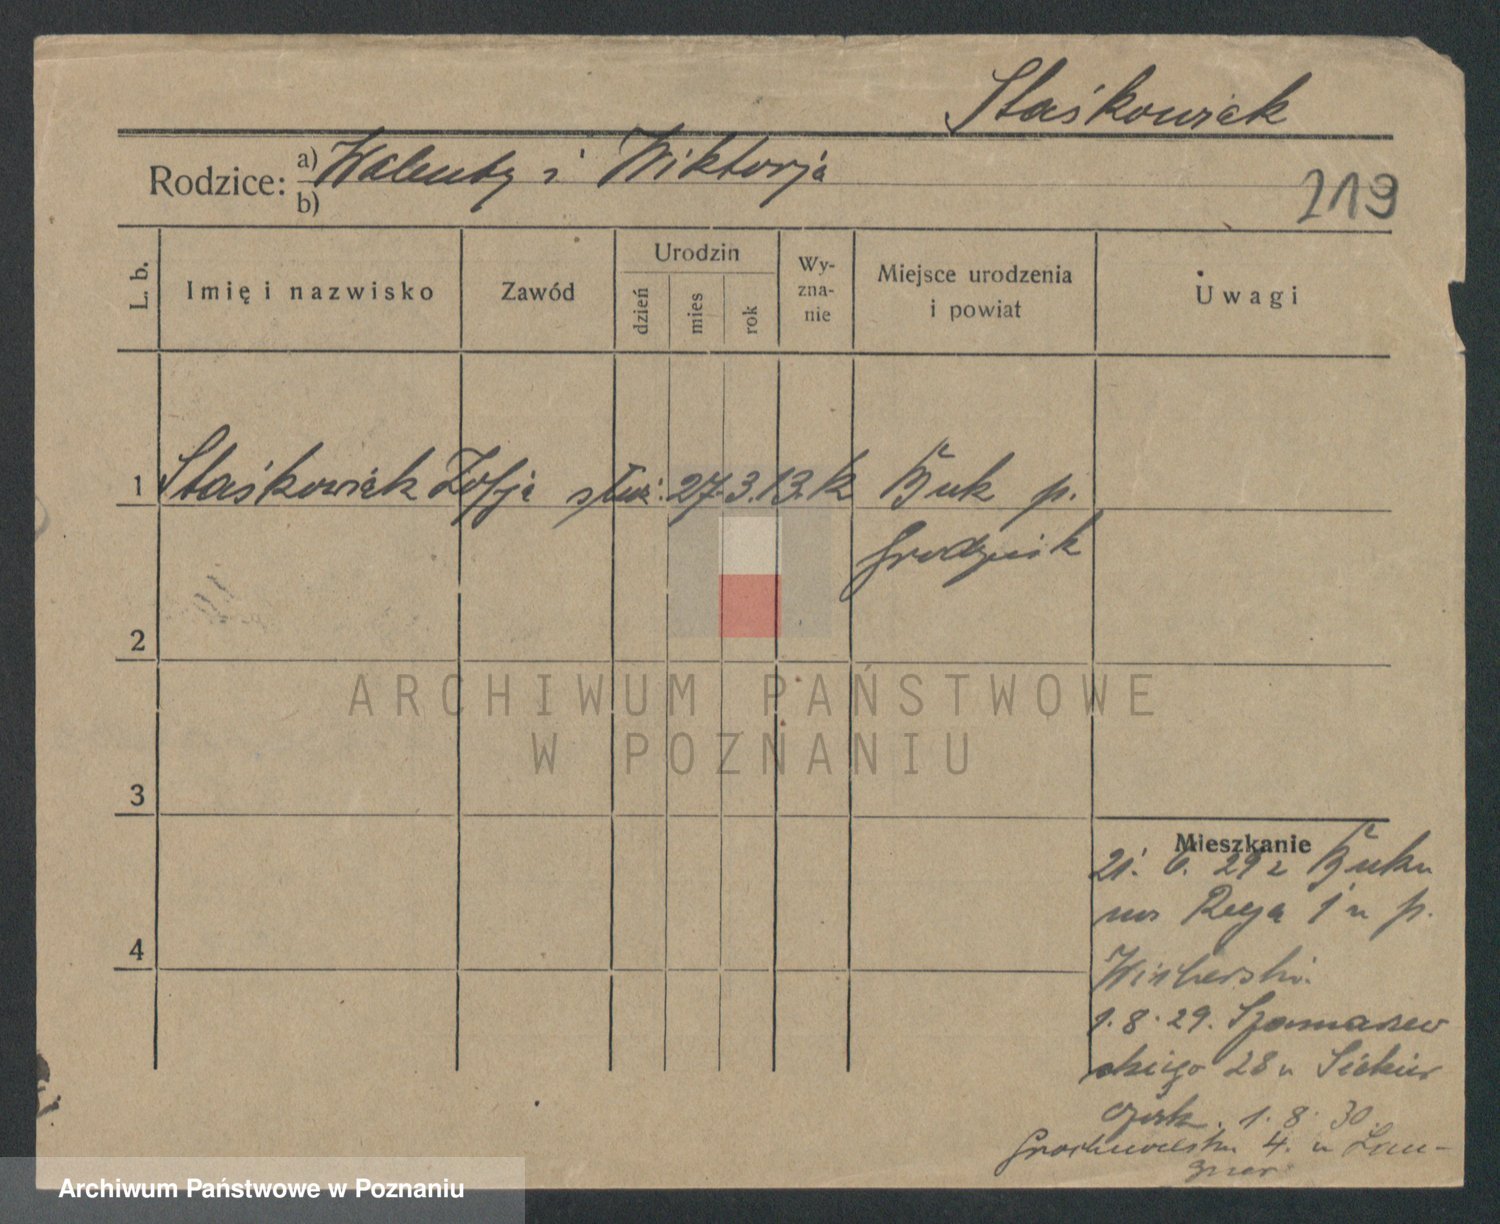 Staśkowiak
Rodzice: a) Walenty i Wiktorja
b)
219
L. b.
Imię i nazwisko
Zawód
Urodzin
dzień
mies
rok
Wy-
zna-
nie
Miejsce urodzenia
i powiat
Uwagi
1 Staśkowiak Zofja służ. 27.3.13. k Buk p.
Grodzisk
2
ARCHIWUM PAŃSTWOWE
W POZNANIU
3
Mieszkanie
21. 6. 29 z Buku
1 u p.
4
1.8.29. Szamarzew
skiego 28 u Siekier
czak. 1.8.30.
4. u
Archiwum Państwowe w Poznaniu